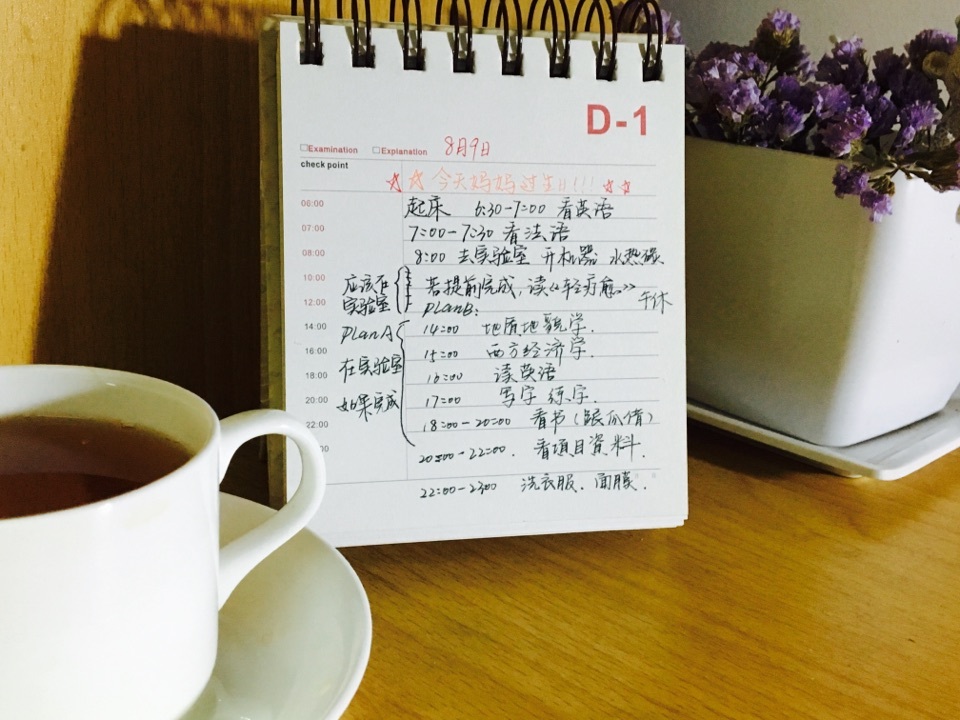 D-1
□Examination □Explanation 8月9日
check point
☆ ☆ 今天妈妈过生日!!!! ☆ ☆
06:00 起床 6:30-7:00 看英语
07:00 7:00-7:30 看法语
08:00 8:00 去实验室 开机器 水热碳
10:00 应该在 若提前完成,读《年轻疗愈》
12:00 实验室 PLanB: 午休
14:00 PLanA 14:00 地质地貌学.
16:00 15:00 西方经济学.
18:00 在实验室 16:00 读英语
20:00 如果完成 17:00 写字 练字.
22:00 18:00-20:00 看书(跟瓜倩)
:00 20:00-22:00. 看项目資料.
22:00-23:00 洗衣服、面膜.